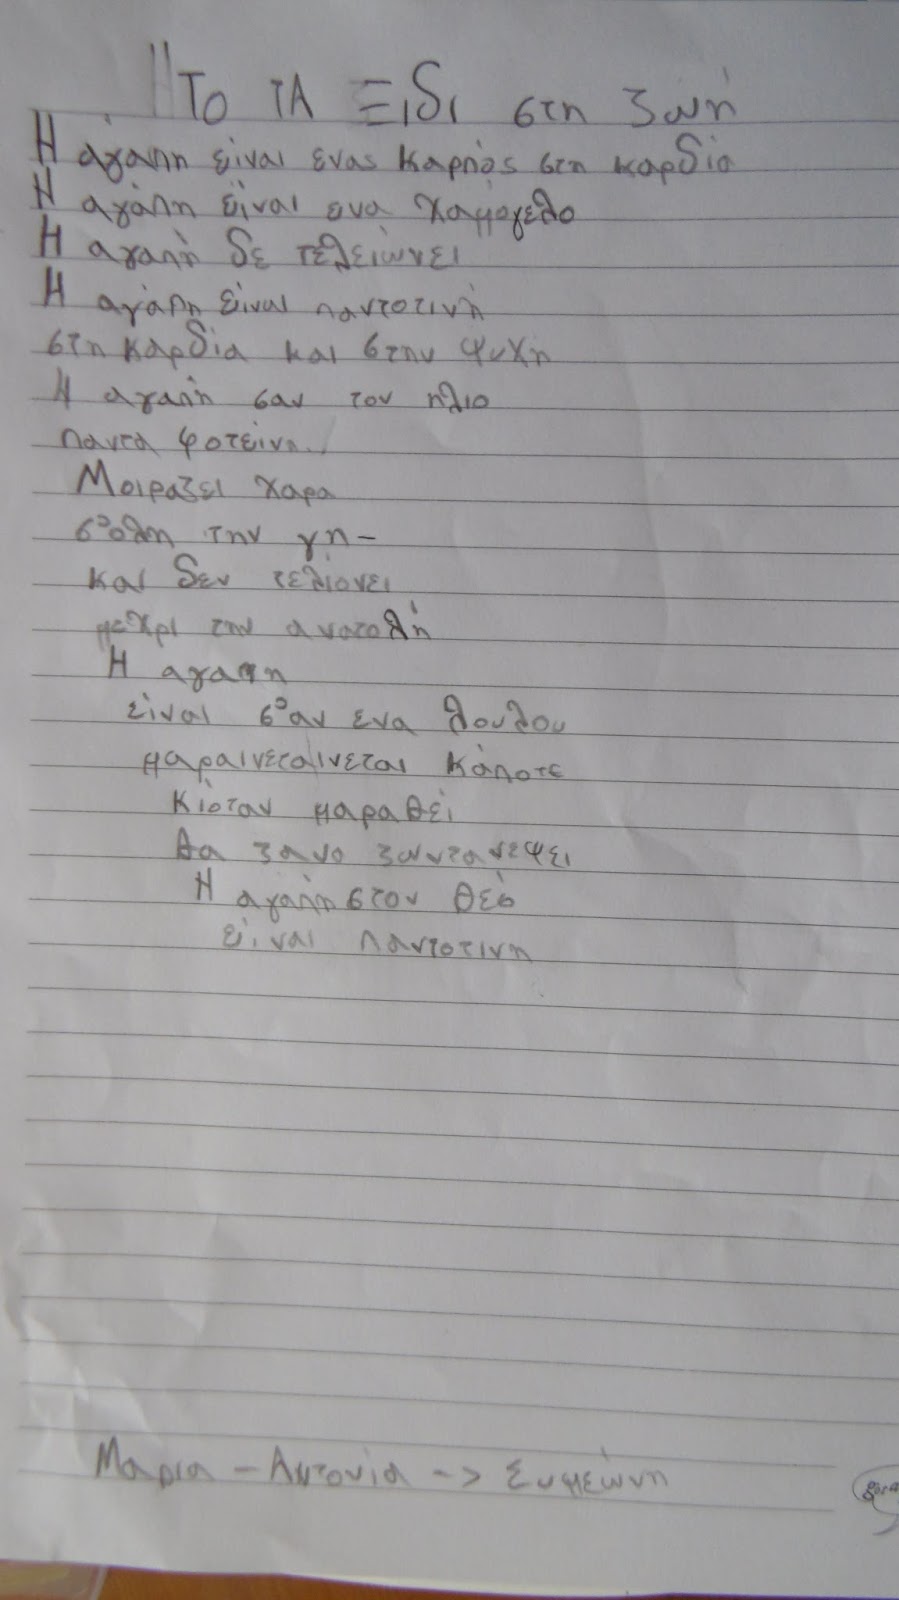 Το τΑ Ξιδι στη ζωή
Η άγαπη είναι ενας καρπός στη καρδία
Η αγάπη είναι ενα χαμόγελο
Η αγαπή δε τελειώνει
Η αγάπη είναι παντοτινή
στη καρδία και στην ψυχή
Η αγαπή σαν τον ηλιο
παντα φοτείνη..
Μοιραζει χαρα
σ'ολη την γη-
και δεν τελιόνει
μεχρι την ανατολή
Η αγαπη
είναι σ'αν ενα λουλου
μαραινεταινεται κάποτε
Κιόταν μαραθεί
θα ξανο ζωντανεψει
Η αγάπη στον θεό
είναι παντοτινη
Μαρια - Αντονία -> Συμεώνη